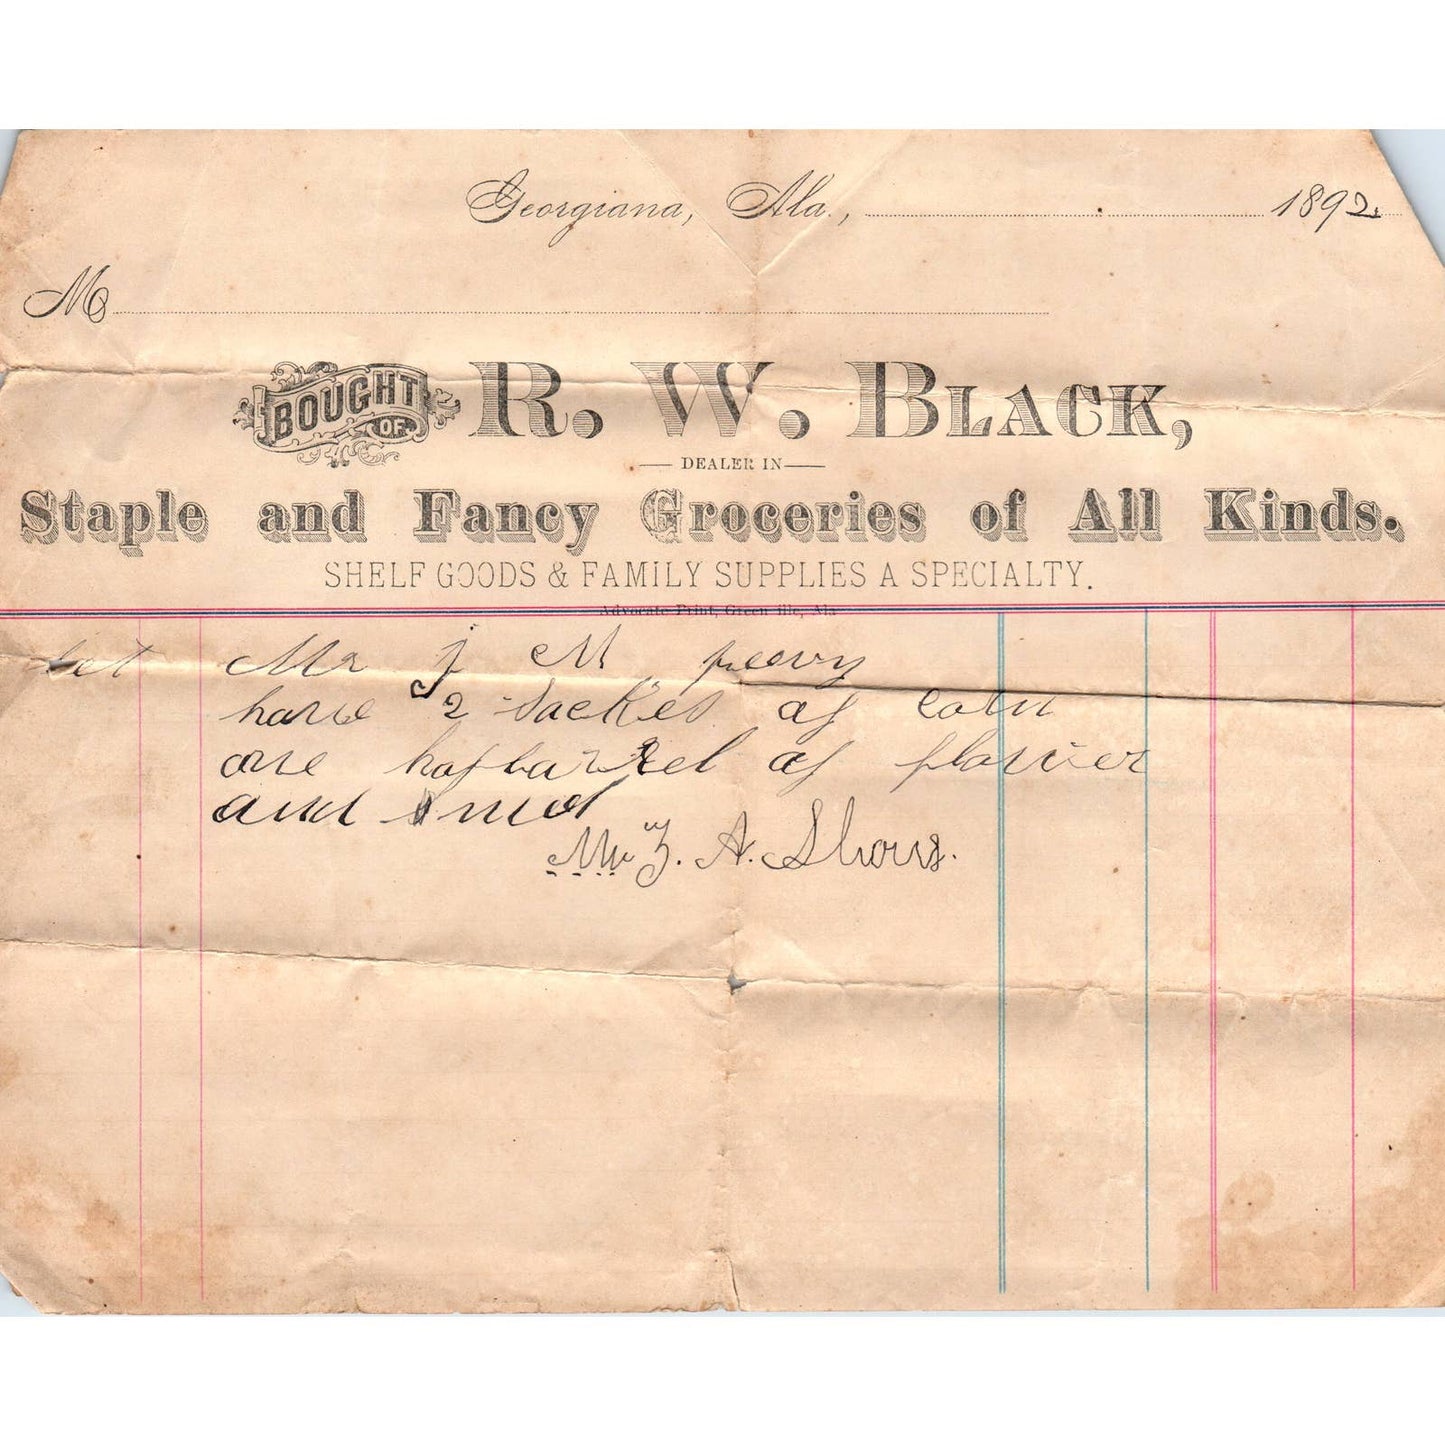 Georgiana, Ala., 1892.
M
BOUGHT OF R. W. BLACK,
DEALER IN
Staple and Fancy Groceries of All Kinds.
SHELF GOODS & FAMILY SUPPLIES A SPECIALTY.
Advocate Print, Green ille, Ala
let Mr J M peavy
have 2 Sackes of corn
one hafbarrel of flower
and
Mr Z. A. Shows.